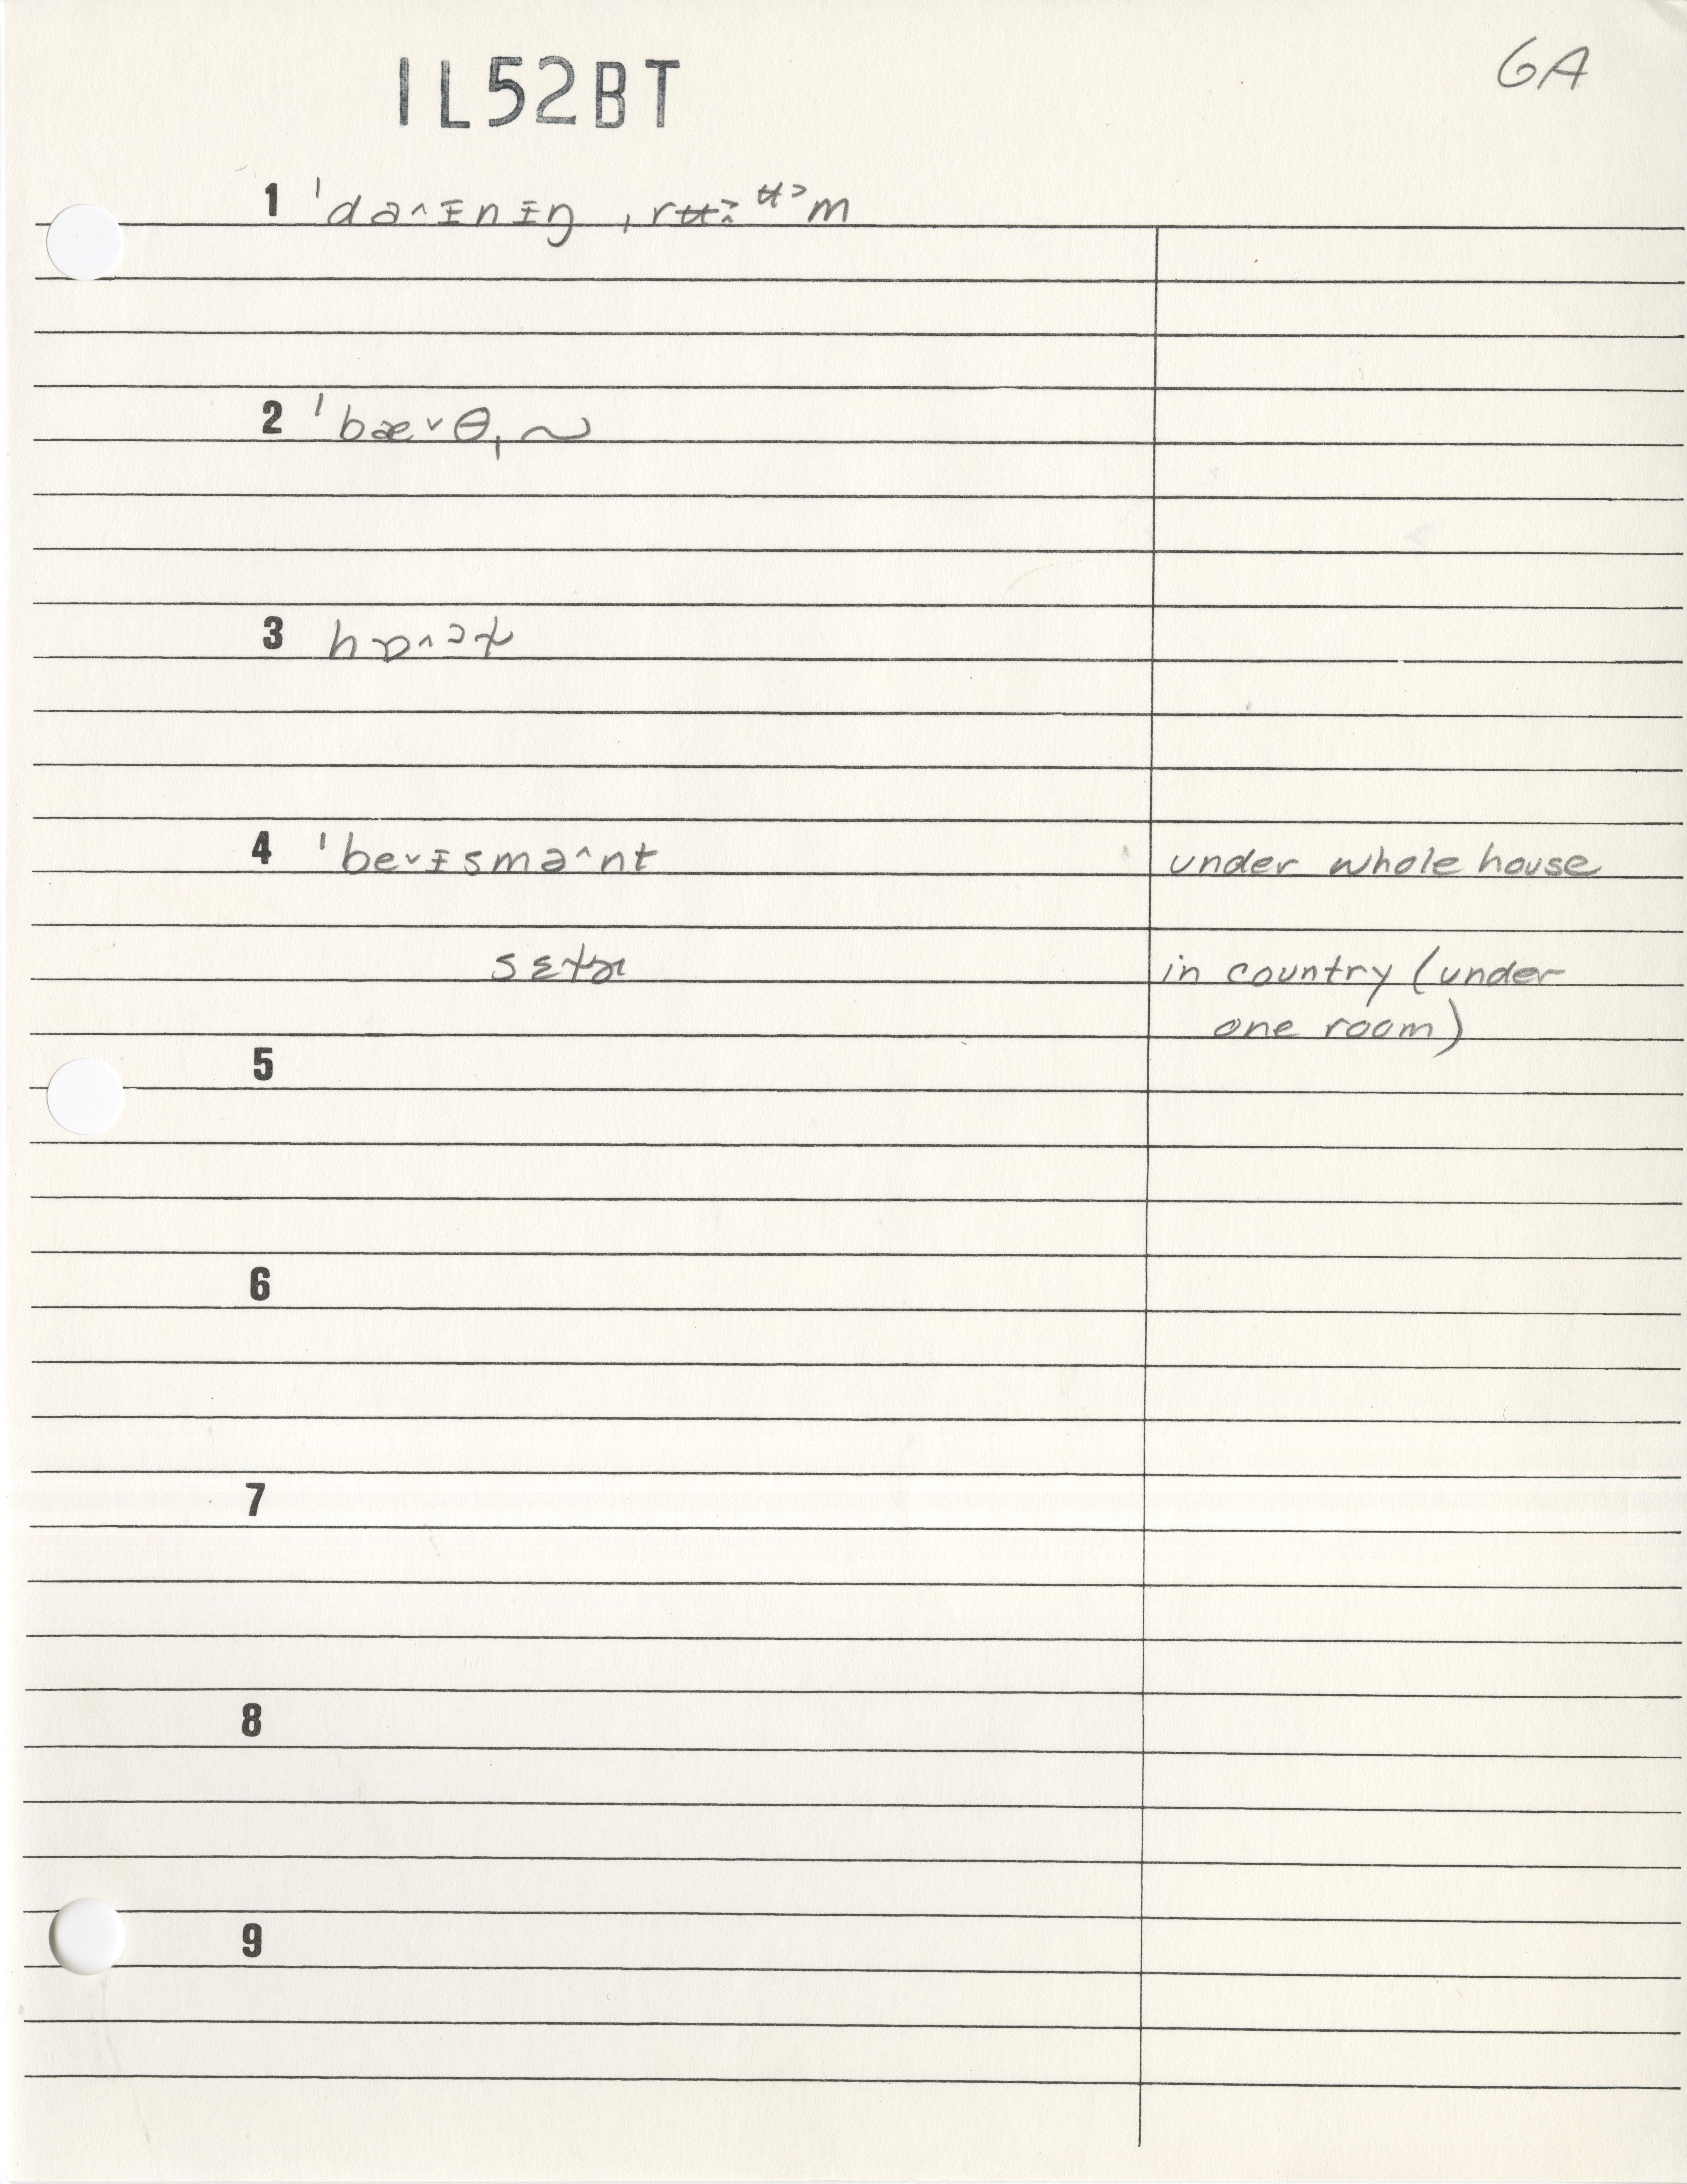 1L52BT
6A
1 ˈda^ɪ̵nɪ̵ŋ ˌrʉ ʉ˃m
2 ˈbæ˅θˌ~
3 hɒ^ɔɫ
4 ˈbe˅ɪ̵smə^nt under whole house
sɛɫɚ in country (under
one room)
5
6
7
8
9